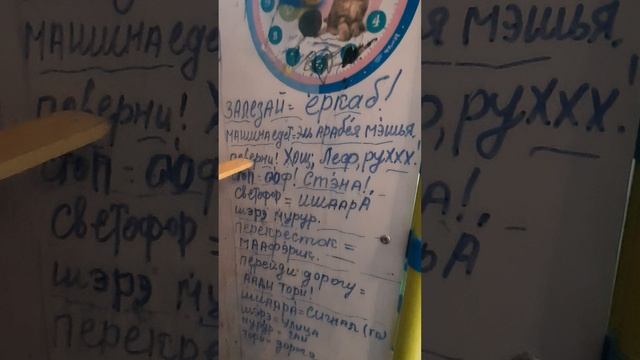 4
5
6
7
8
ЗАЛЕЗАЙ = ёркаб!
МАШИНА едет = эль АРАБЕЯ МЭШЬЯ.
поверни! Хош, Леф, руххх!
стоп = ооф! Стэна!
светофор = ишаарА
шэрэ мурур.
перекресток =
МААФЭРИК.
перейди дорогу =
ААЛИ ТОРИ!
ишаарА = сигнал (
шэрэ = улица
мурур = гаи
дорога